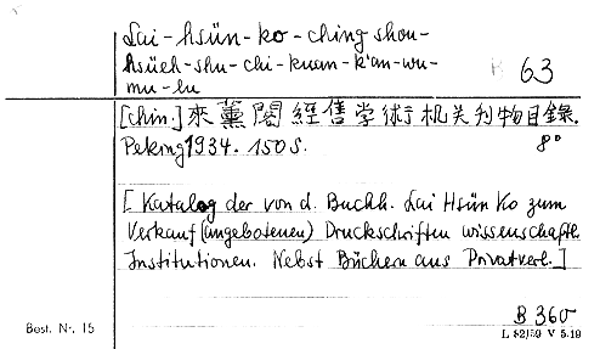 Lai-hsün-ko-ching shou-
hsüeh-shu-chi-kuan-k'an-wu-
mu-lu
63
[chin.] 來薰閣經售学術机关刊物目錄.
Peking 1934. 150 S.
8°
[Katalog der von d. Buchh. Lai Hsün Ko zum
Verkauf (angebotenen) Druckschriften wissenschaftl.
Institutionen. Nebst Büchern aus Privatverl.]
B 360
Best. Nr. 15
L 82/59 V 5.19